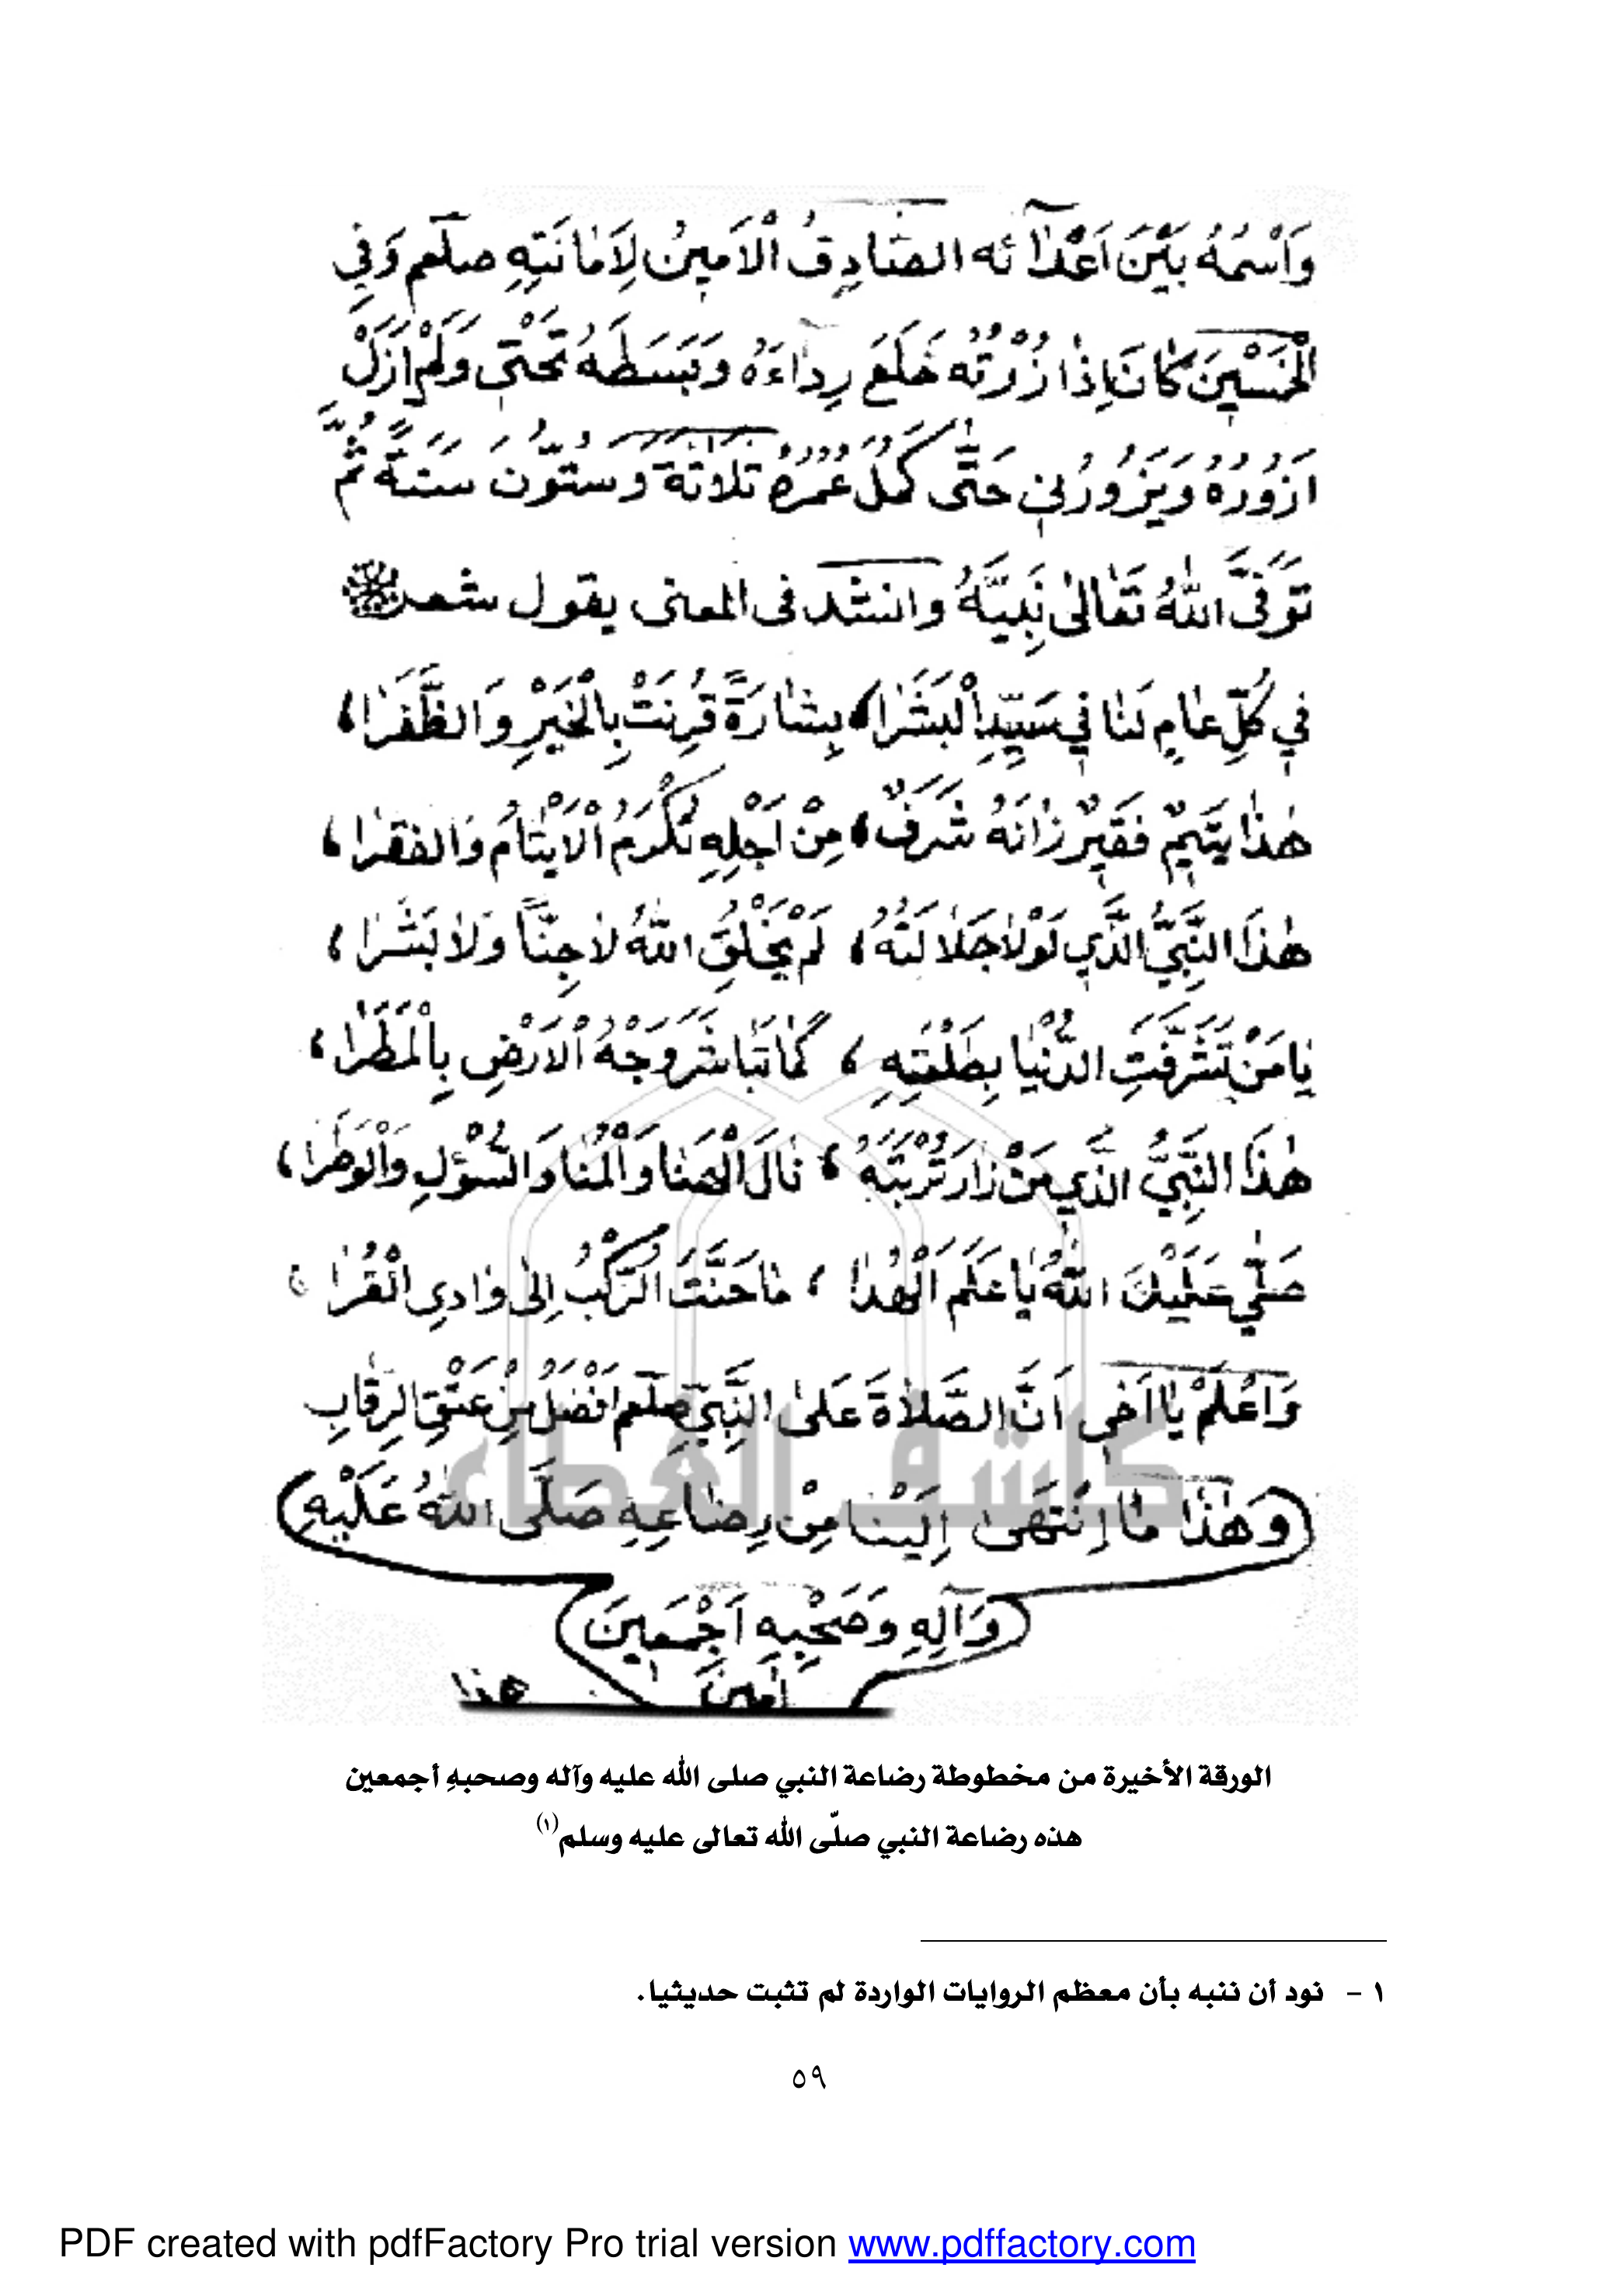 وَاسْمُهُ بَيْنَ اَعْدٰٓائه الصَّادِقُ الْاَمِينُ لِاَمٰانَتِهِ صلعم وَفِي
الْحَسْيِنَ كٰانَ اِذٰا زُرْتُه خَلَعَ رِدٰاءَهُ وَبَسَطَهُ تَحْتِي وَلَمْ اَزَلْ
اَزُورُهُ وَيَزُورُنِي حَتّٰى كَمُلَ عُمُرُهُ ثَلاثَةَ وَسِتُّونَ سَنَةً ثُمَّ
تَوَفَّى اللهُ تَعٰالىٰ نَبِيَّهُ وانشد فى المعنى يقول شعر
فِي كُلِّ عٰامٍ لَنٰا فِي سَيِّدِ الْبَشَرٰا بِشٰارَةً قُرِنَتْ بِالْخَيْرِ وَالظَّفَرٰا،
هٰذٰا يَتِيمٌ فَقِيرٌ زٰانَهُ شَرَفٌ، مِنْ اَجْلِهِ تُكْرَمُ الْاَيْتٰامُ وَالفقرٰا،
هٰذَا النَّبِيُّ الَّذِي لَوْلٰا جَلٰالَتُهُ، لَمْ يَخْلُقِ اللهُ لٰا جِنّاً وَلٰا بَشَرٰا،
يٰا مَنْ تَشَرَّفَتِ الدُّنْيٰا بِطَلْعَتِهِ، كَمٰا تَبٰاشَرَ وَجْهُ الْاَرْضِ بِالْمَطَرٰا،
هٰذَا النَّبِيُّ الَّذِي مَنْ زٰارَ تُرْبَتَهُ، نٰالَ الْهَنٰا وَالْمُنٰا وَالسُّؤْلِ وَالْوَطَرٰا،
صَلّٰي عَلَيْكَ اللهُ يٰا عَلَمَ الْهُدٰا، مٰا حَنَّتَ الرَّكْبُ اِلىٰ وٰادِي الْقُرٰا
وَاعْلَمْ يٰا اَخِي اَنَّ الصَّلٰاةَ عَلىٰ النَّبِيِّ صلعم اَفْضَلُ مِنْ عَتْقِ الرِقٰابِ
وَهٰذٰا مٰا اِنْتَهَىٰ اِلَيْنٰا مِنْ رِضٰاعِهِ صَلَّى اللهُ عَلَيْهِ
وَآلِهِ وَصَحْبِهِ اَجْمَعِينَ
اٰمين
هذا
كاشف الغطاء
الورقة الأخيرة من مخطوطة رضاعة النبي صلى الله عليه وآله وصحبهِ أجمعين
هذه رضاعة النبي صلّى الله تعالى عليه وسلم(١)
١ - نود أن ننبه بأن معظم الروايات الواردة لم تثبت حديثيا.
٥٩
PDF created with pdfFactory Pro trial version www.pdffactory.com